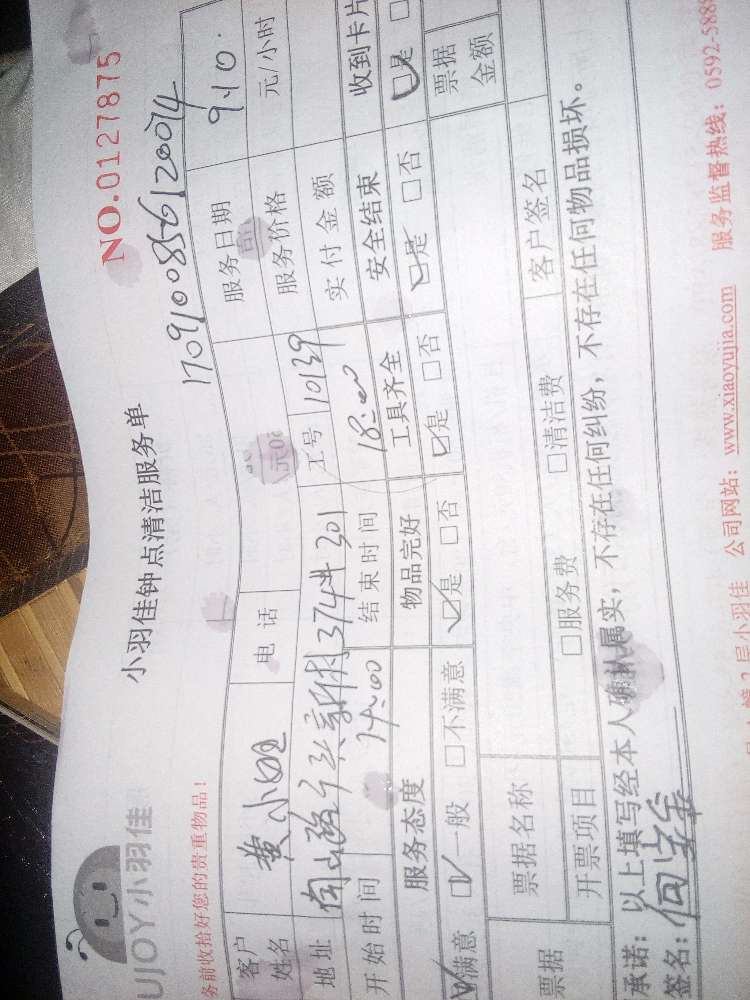 UJOY小羽佳
小羽佳钟点清洁服务单
NO.0127875
务前收拾好您的贵重物品!
1709100856120074
客户姓名 黄小姐 电话 服务日期 9.10.
服务价格 元/小时
地址 374# 301 工号 10139 实付金额
开始时间 14:00 结束时间 18:00
服务态度 物品完好 工具齐全 安全结束 收到卡片
满意 □一般 □不满意 □是 □否 □是 □否 □是 □否 □是
票据 票据名称 票据金额
开票项目 □服务费 □清洁费 客户签名
承诺: 以上填写经本人确认属实, 不存在任何纠纷, 不存在任何物品损坏。
签名:
第2层小羽佳 公司网站: www.xiaoyujia.com 服务监督热线: 0592-5888